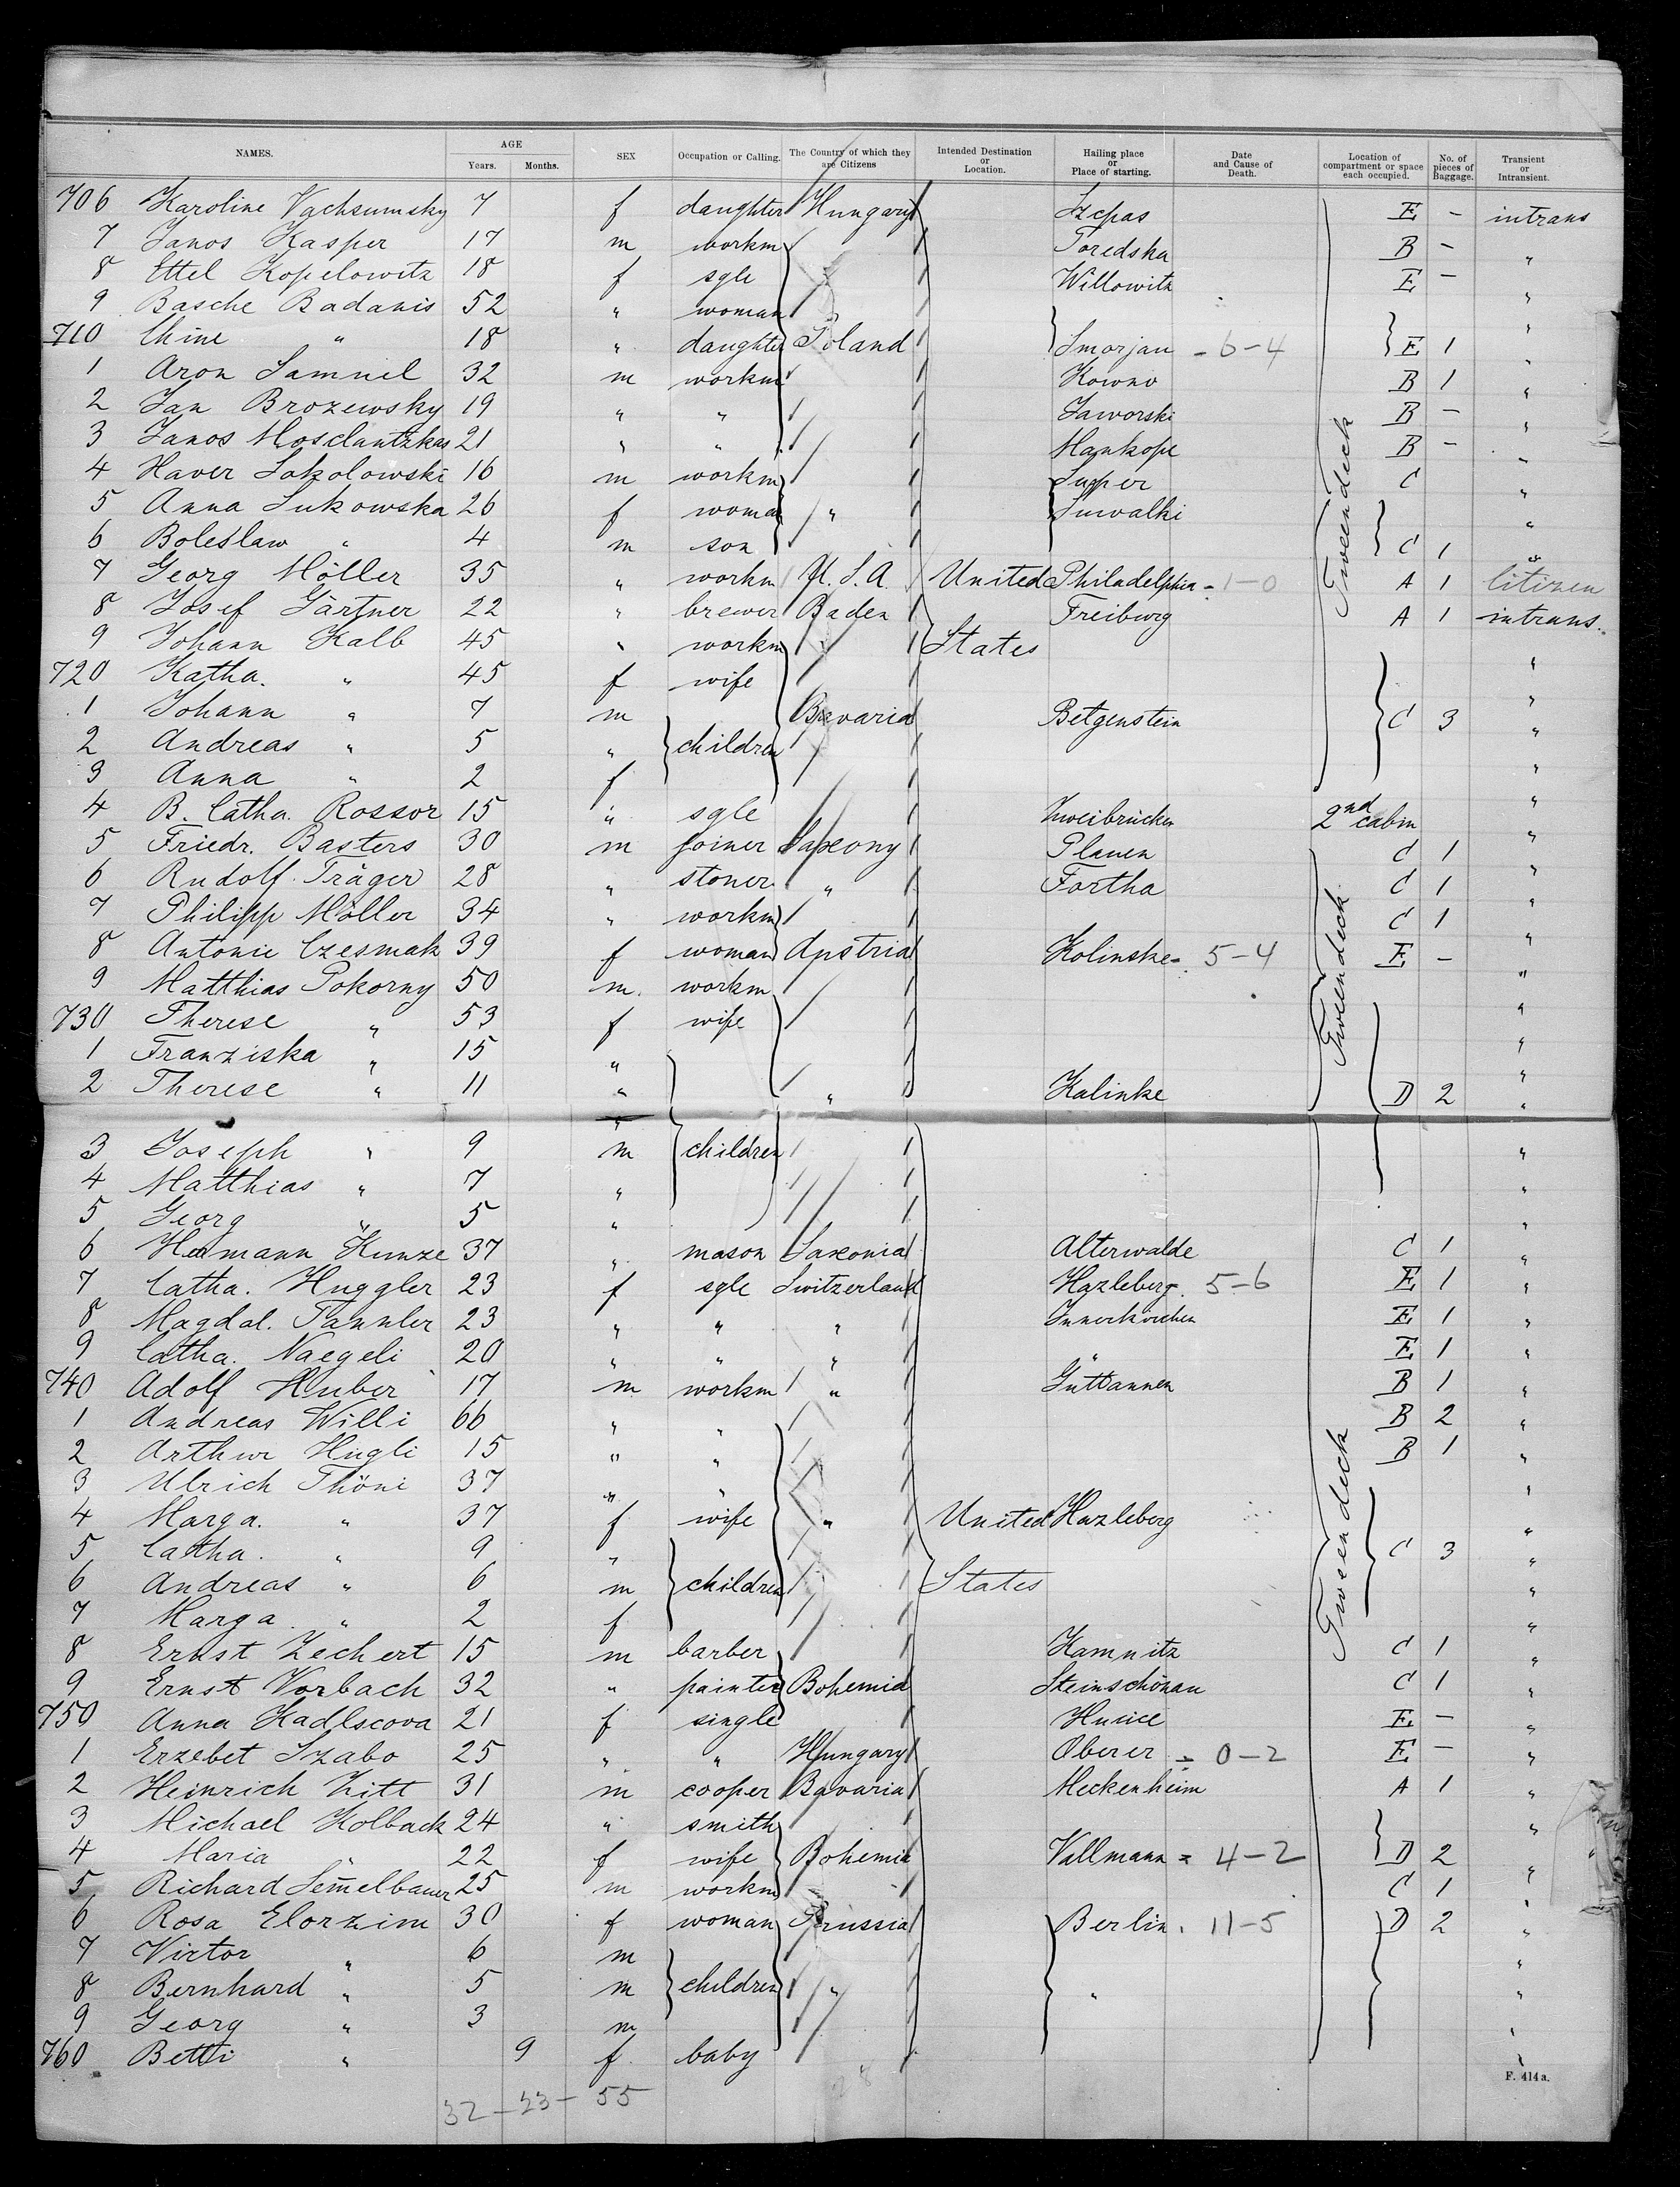 NAMES. AGE Years. Months. SEX Occupation or Calling. The Country of which they are Citizens Intended Destination or Location. Hailing place or Place of starting. Date and Cause of Death. Location of compartment or space each occupied. No. of pieces of Baggage. Transient or Intransient.
706 Karoline Vachsumsky 7 f daughter Hungary Szepas E – intrans
7 Janos Kasper 17 m workm Toredska B – "
8 Ettel Kopelowitz 18 f sgle Willowitz E – "
9 Basche Badanis 52 " woman "
710 Chine " 18 " daughter Poland Smorjan - 6-4 E 1 "
1 Aron Samuel 32 m workm Kowno B 1 "
2 Jan Brozewsky 19 " " Jaworski B – "
3 Janos Mosclantzkas 21 " " Mankope B – "
4 Haver Sokolowski 16 m workm Super C "
5 Anna Sukowska 26 f woman " Suwalki "
6 Boleslaw " 4 m son C 1 "
7 Georg Möller 35 " workm U.S.A. United Philadelphia - 1-0 A 1 Citizen
8 Josef Gärtner 22 " brewer Baden Freiburg A 1 intrans.
9 Johann Kalb 45 " workm States "
720 Katha. " 45 f wife "
1 Johann " 7 m Bavaria Betgenstein C 3 "
2 Andreas " 5 " children "
3 Anna " 2 f "
4 B. Catha. Rossor 15 " sgle Zweibrücken 2nd cabin "
5 Friedr. Basters 30 m joiner Saxony Plauen C 1 "
6 Rudolf Träger 28 " stoner " Fortha C 1 "
7 Philipp Möller 34 " workm C 1 "
8 Antonie Czesmak 39 f woman Austria Kolinske - 5-4 E – "
9 Matthias Pokorny 50 m. workm "
730 Therese " 53 f wife "
1 Franziska " 15 " "
2 Therese " 11 " " Kalinke D 2 "
3 Joseph " 9 m children "
4 Matthias " 7 " "
5 Georg " 5 " "
6 Hermann Kunze 37 " mason Saxonia Alterwalde C 1 "
7 Catha. Huggler 23 f sgle Switzerland Hazleberg. 5-6 E 1 "
8 Magdal. Tannler 23 " " " Innerkirchen E 1 "
9 Catha. Naegeli 20 " " " " E 1 "
740 Adolf Huber 17 m workm " Güttannen B 1 "
1 Andreas Willi 66 " " B 2 "
2 Arthur Hugli 15 " " B 1 "
3 Ulrich Thöni 37 " " "
4 Marga. " 37 f wife " United Hazleberg "
5 Catha. " 9 " C 3 "
6 Andreas " 6 m children States "
7 Marga. " 2 f "
8 Ernst Zechert 15 m barber Kamnitz C 1 "
9 Ernst Vorbach 32 " painter Bohemia Steinschönau C 1 "
750 Anna Kadlscova 21 f single E – "
1 Erzebet Szabo 25 " " Hungary Oberer - 0-2 E – "
2 Heinrich Zitt 31 m cooper Bavaria Meckenheim A 1 "
3 Michael Kolback 24 " smith "
4 Maria " 22 f wife Bohemia Vallmann = 4-2 D 2 "
5 Richard Semelbauer 25 m workm C 1 "
6 Rosa Elorzim 30 f woman Prussia Berlin. 11-5 D 2 "
7 Virtor " 6 m "
8 Bernhard " 5 m children " " "
9 Georg " 3 m "
760 Betti " 9 f. baby "
Tweendeck
Tweendeck
Tweendeck
32 - 23 - 55
F. 414a.